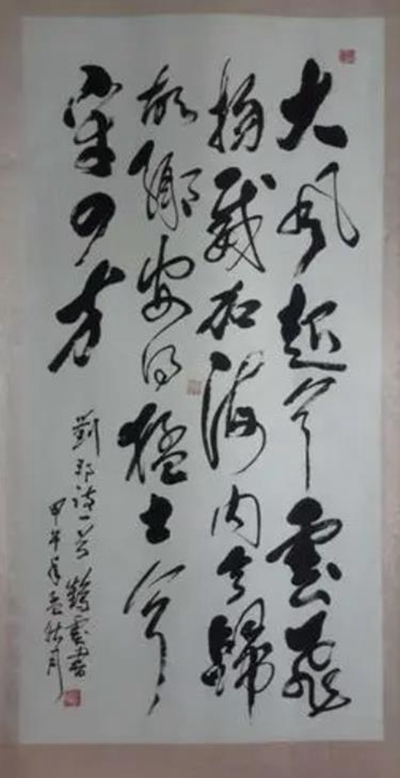 大風起兮雲飛
揚威加海內兮歸
故鄉安得猛士兮
守四方
劉邦詩一首 鶴雲書
甲午年孟秋月